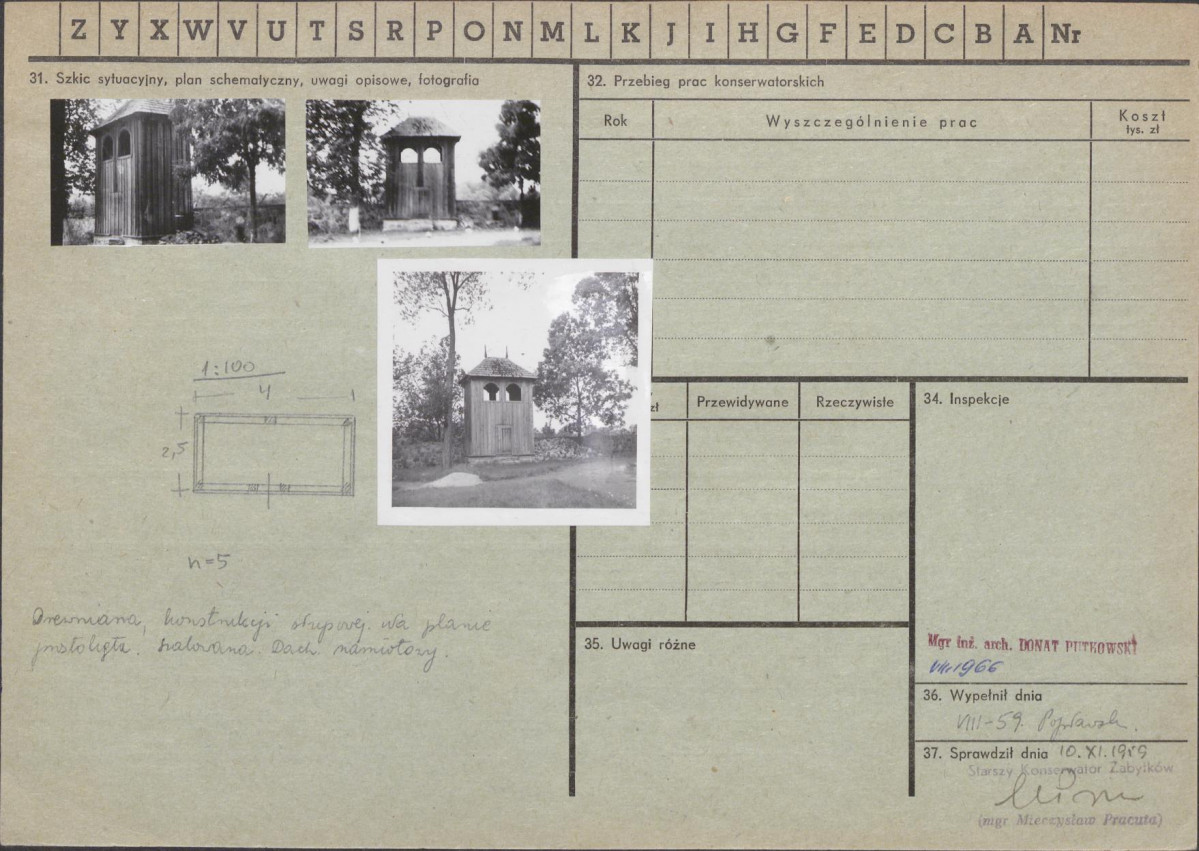 Z Y X W V U T S R P O N M L K J I H G F E D C B A Nr
31. Szkic sytuacyjny, plan schematyczny, uwagi opisowe, fotografia
32. Przebieg prac konserwatorskich
Rok
Wyszczególnienie prac
Koszt
tys. zł
1:100
4
2,5
n=5
Drewniana, konstrukcji słupowej. Na planie
prostokąta. Szalowana. Dach namiotowy.
zł
Przewidywane
Rzeczywiste
34. Inspekcje
Mgr inż. arch. DONAT PUTKOWSKI
VIII 1966
35. Uwagi różne
36. Wypełnił dnia
VIII-59.
37. Sprawdził dnia 10.XI.1959
Starszy Konserwator Zabytków
(mgr Mieczysław Pracuta)